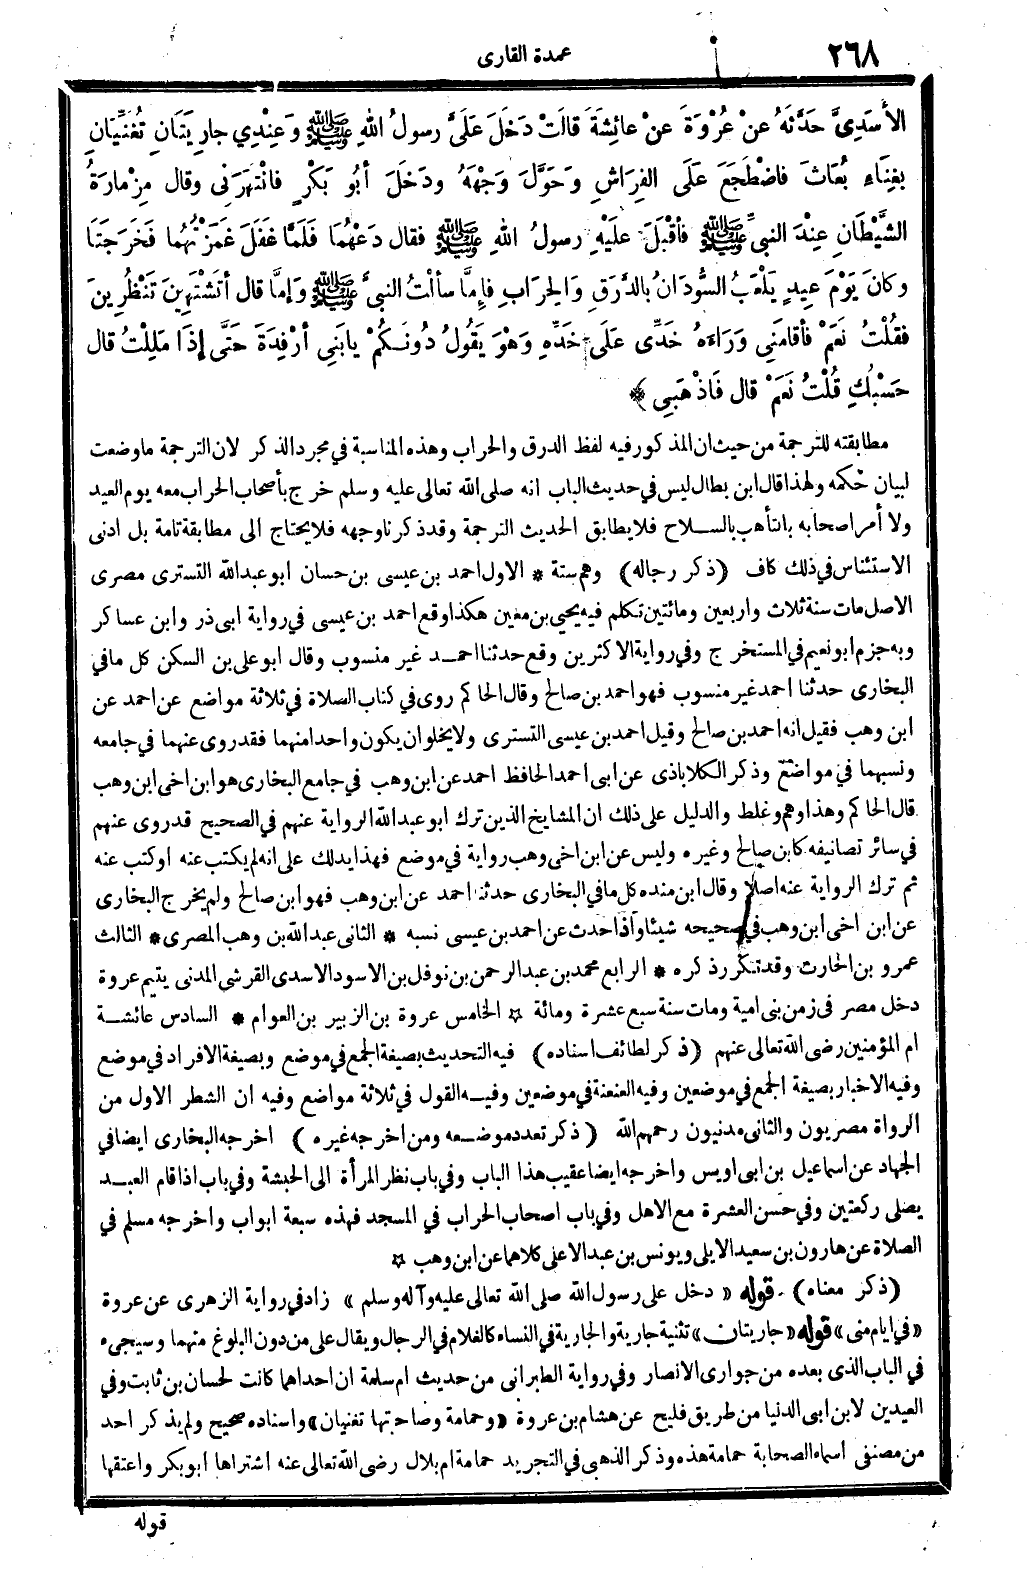 ٢٦٨
عمدة القارى
الأسَدِىَّ حَدَّثَهُ عنْ عُرْوَةَ عنْ عائِشَةَ قالَتْ دَخَلَ عَلَىَّ رسولُ اللهِ ﷺ وَعِنْدِي جارِيَتَانِ تُغَنِّيَانِ
بِغِنَاءِ بُعَاثَ فاضْطَجَعَ عَلَى الفِرَاشِ وَحَوَّلَ وَجْهَهُ ودَخَلَ أبُو بَكْرٍ فانْتَهَرَنِى وقال مِزْمارَةُ
الشَّيْطَانِ عِنْدَ النبيِّ ﷺ فأقْبَلَ علَيْهِ رسولُ اللهِ ﷺ فقال دَعْهُمَا فَلَمَّا غَفَلَ غَمَزْتُهُما فَخَرَجَتَا
وكانَ يَوْمَ عِيدٍ يَلْعَبُ السُّودَانُ بالدَّرَقِ وَالحِرَابِ فإِمَّا سألْتُ النبيَّ ﷺ وَإمَّا قال أتَشْتَهِينَ تَنْظُرِينَ
فقُلْتُ نَعَمْ فأقامَنِي وَرَاءَهُ خَدِّى علَى خَدِّهِ وَهْوَ يَقُولُ دُونَكُمْ يابَنِي أرْفِدَةَ حَتَّى إذَا مَلِلْتُ قال
حَسْبُكِ قُلْتُ نَعَمْ قال فَاذْهَبِى ﴾
مطابقته للترجمة من حيث ان المذكور فيه لفظ الدرق والحراب وهذه المناسبة في مجرد الذكر لان الترجمة ما وضعت
لبيان حكمه ولهذا قال ابن بطال ليس في حديث الباب انه صلى الله تعالى عليه وسلم خرج بأصحاب الحراب معه يوم العيد
ولا أمر اصحابه بالتأهب بالسلاح فلا يطابق الحديث الترجمة وقد ذكرنا وجهه فلا يحتاج الى مطابقة تامة بل ادنى
الاستئناس في ذلك كاف (ذكر رجاله) وهم ستة * الاول احمد بن عيسى بن حسان ابو عبد الله التسترى مصرى
الاصل مات سنة ثلاث واربعين ومائتين تكلم فيه يحيي بن معين هكذا وقع احمد بن عيسى في رواية ابى ذر وابن عساكر
وبه جزم ابو نعيم في المستخرج وفي رواية الاكثرين وقع حدثنا احمد غير منسوب وقال ابو على بن السكن كل ما في
البخارى حدثنا احمد غير منسوب فهو احمد بن صالح وقال الحاكم روى في كتاب الصلاة في ثلاثة مواضع عن احمد عن
ابن وهب فقيل انه احمد بن صالح وقيل احمد بن عيسى التسترى ولا يخلو ان يكون واحدا منهما فقد روى عنهما في جامعه
ونسبهما في مواضع وذكر الكلاباذى عن ابى احمد الحافظ احمد عن ابن وهب في جامع البخارى هو ابن اخى ابن وهب
قال الحاكم وهذا وهم وغلط والدليل على ذلك ان المشايخ الذين ترك ابو عبد الله الرواية عنهم في الصحيح قد روى عنهم
في سائر تصانيفه كابن صالح وغيره وليس عن ابن اخى وهب رواية في موضع فهذا يدلك على انه لم يكتب عنه او كتب عنه
ثم ترك الرواية عنه اصلا وقال ابن منده كل ما في البخارى حدثنا احمد عن ابن وهب فهو ابن صالح ولم يخرج البخارى
عن ابن اخى ابن وهب في صحيحه شيئا واذا حدث عن احمد بن عيسى نسبه * الثانى عبد الله بن وهب المصرى * الثالث
عمرو بن الحارث وقد تكرر ذكره * الرابع محمد بن عبد الرحمن بن نوفل بن الاسود الاسدى القرشى المدنى يتيم عروة
دخل مصر فى زمن بنى امية ومات سنة سبع عشرة ومائة ☆ الخامس عروة بن الزبير بن العوام * السادس عائشة
ام المؤمنين رضى الله تعالى عنهم (ذكر لطائف اسناده) فيه التحديث بصيغة الجمع في موضع وبصيغة الافراد في موضع
وفيه الاخبار بصيغة الجمع في موضعين وفيه العنعنة في موضعين وفيه القول في ثلاثة مواضع وفيه ان الشطر الاول من
الرواة مصريون والثانى مدنيون رحمهم الله (ذكر تعدد موضعه ومن اخرجه غيره) اخرجه البخارى ايضا في
الجهاد عن اسماعيل بن ابى اويس واخرجه ايضا عقيب هذا الباب وفي باب نظر المرأة الى الحبشة وفي باب اذا قام العبد
يصلى ركعتين وفي حسن العشرة مع الاهل وفي باب اصحاب الحراب في المسجد فهذه سبعة ابواب واخرجه مسلم في
الصلاة عن هارون بن سعيد الايلى ويونس بن عبد الاعلى كلاهما عن ابن وهب ☆
(ذكر معناه) . قوله « دخل على رسول الله صلى الله تعالى عليه وآله وسلم » زاد في رواية الزهرى عن عروة
«في ايام منى» قوله «جاريتان» تثنية جارية والجارية في النساء كالغلام في الرجال ويقال على من دون البلوغ منهما وسيجىء
في الباب الذى بعده من جوارى الانصار وفي رواية الطبرانى من حديث ام سلمة ان احداهما كانت لحسان بن ثابت وفي
العيدين لابن ابى الدنيا من طريق فليح عن هشام بن عروة «وحمامة وصاحبتها تغنيان» واسناده صحيح ولم يذكر احد
من مصنفى اسماء الصحابة حمامة هذه وذكر الذهبى في التجريد حمامة ام بلال رضى الله تعالى عنه اشتراها ابو بكر واعتقها
قوله